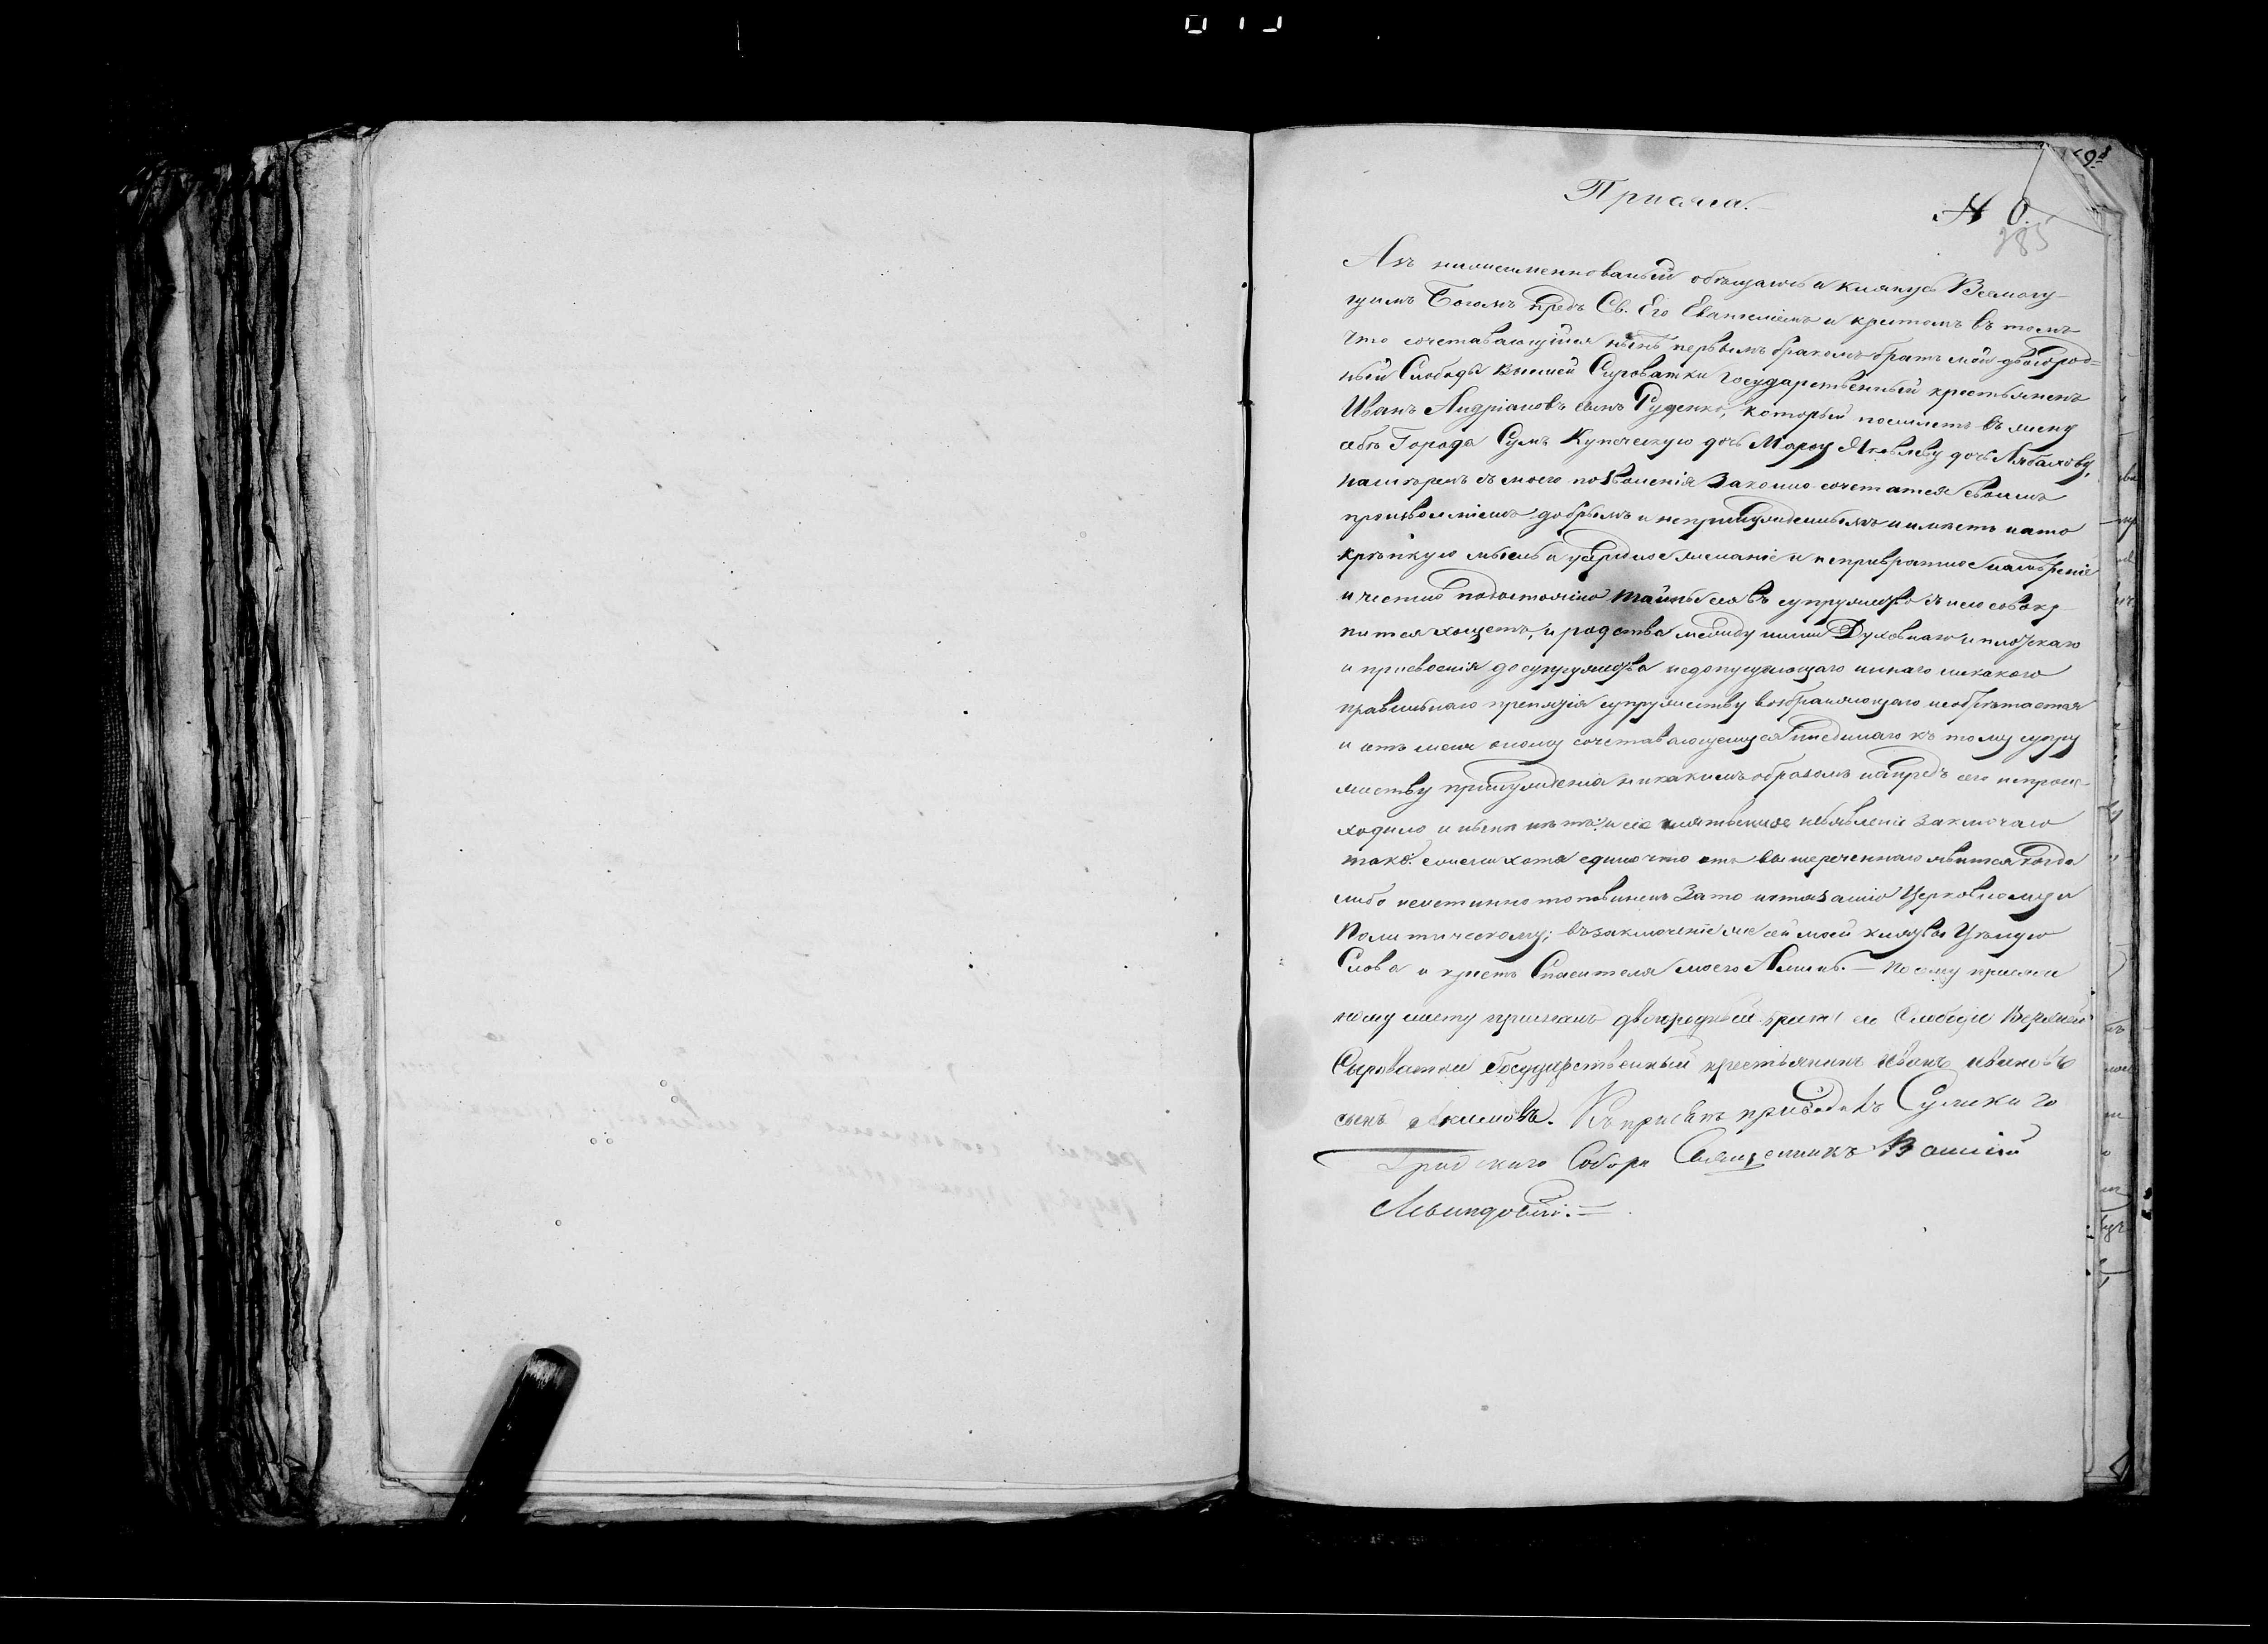 Присяга.
№ 6.
385
Азъ нижеименнованый обѣщаюсь и клянусь Всемогу-
щимъ Богомъ предъ Св. Его Евангеліемъ и крестомъ въ томъ
что сочетавающійся нынѣ первымъ бракомъ братъ мой двоюрод-
ный Слободы Вышей Сыроватки Государственный крестьянинъ
Иванъ Андріановъ сынъ Руденко, который поемлетъ въ жену
себѣ Города Сумъ Купеческую дочь Марѳу Яковлеву дочь
намѣренъ съ моего позволенія Законно сочетатся своимъ
произволеніемъ добрымъ и непринужденнымъ и имѣетъ на то
крѣпкую мысль и усердное желаніе и непревратное намѣреніе
и честно подостоянію тайны сея въ супружество съ нею совоку-
пится хощетъ, и родства между ними Духовнаго и плотскаго
и присвоенія до супружества недопущающаго и инаго никакого
правильнаго препятія супружеству возбраняющаго необрѣтается
и отъ мене оному сочетавающемуся ниединаго къ тому супру
жеству принужденія никакимъ образомъ напредь сего непроис-
ходило и нынѣ нѣтъ: и сіе клятвенное объявленіе Заключаю
тако: ежели хотя едино что отъ вышереченнаго явится когда
либо неистинно то повиненъ За то истязанію Церковному и
Политическому; въ заключеніе же сей моей клятвы Цѣлую
Слова и крестъ Спасителя моего Аминь. — По сему присяж
ному листу присягалъ двоюродный братъ Слободы Верхней
Сыроватки Государственный крестьянинъ Иванъ Ивановъ
сынъ Акимовъ. Къ присягѣ приводилъ Сумскаго
Градскаго Собора Священникъ Василій